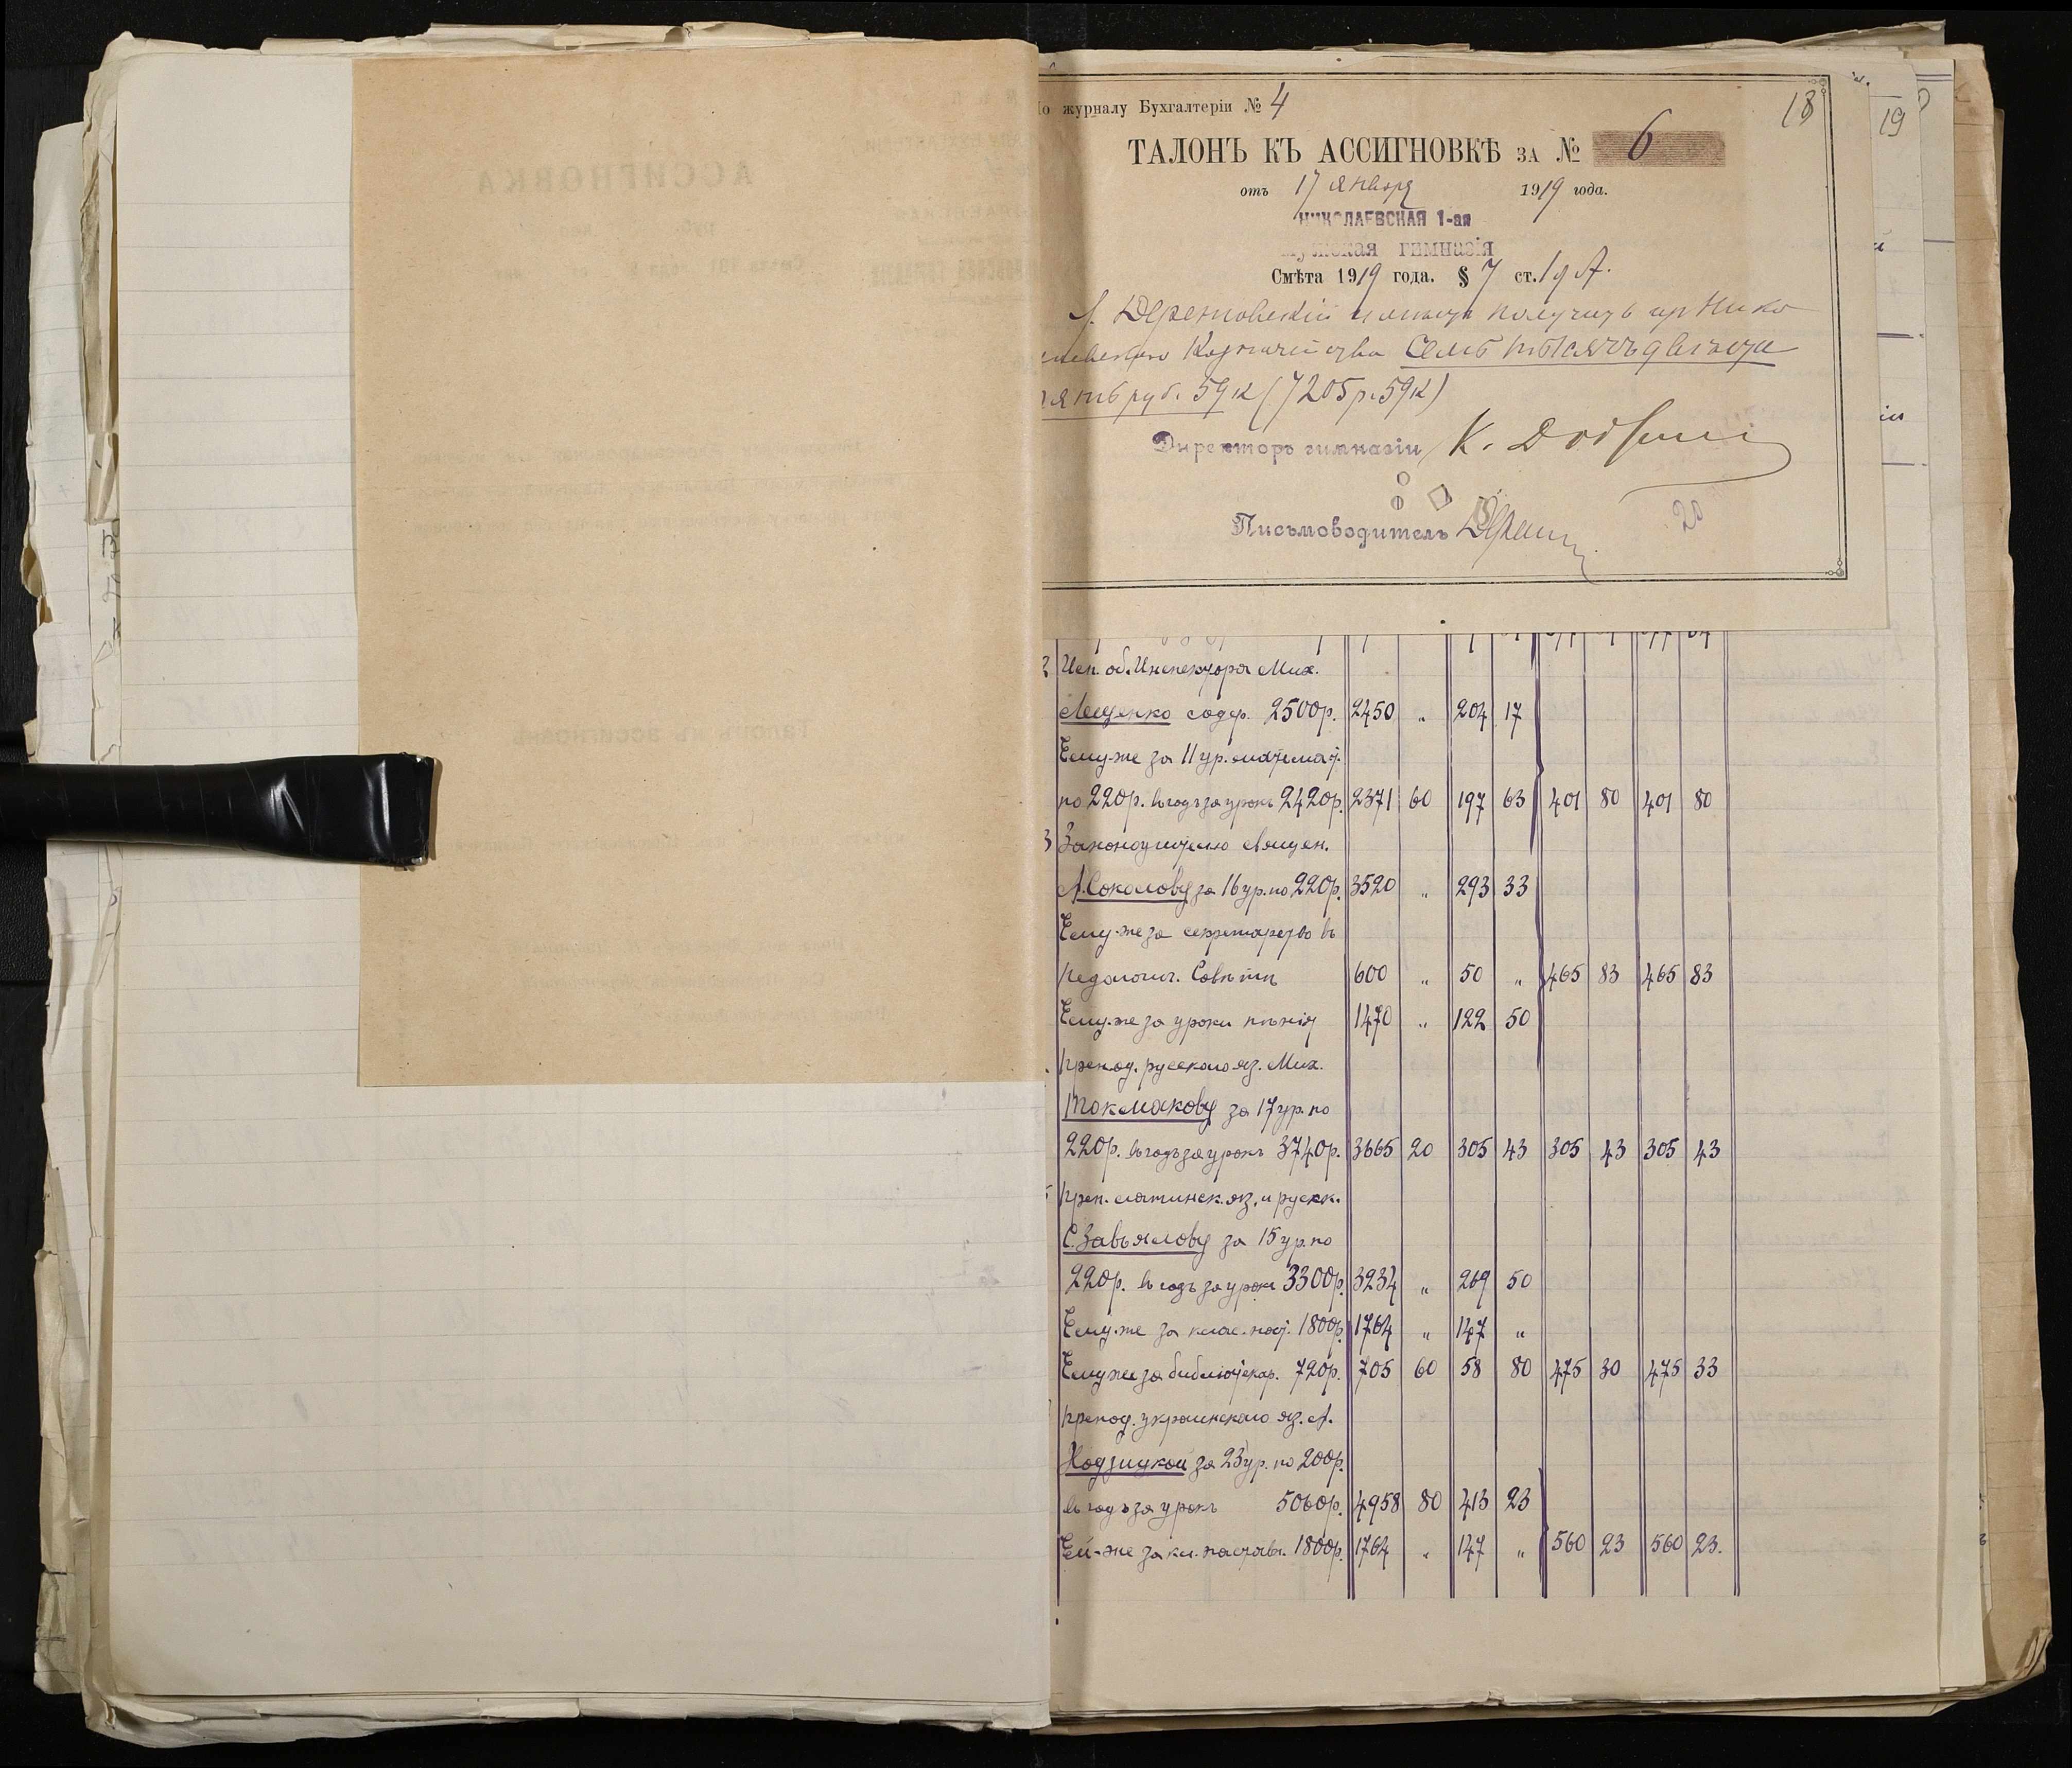 журналу Бухгалтеріи № 4
18
19
ТАЛОНЪ КЪ АССИГНОВКѢ ЗА № 6
отъ 17 января 1919 года.
НИКОЛАЕВСКАЯ 1-ая
мужская гимназія
Смѣта 1919 года. § 7 ст. 1
получить
Казначейства Семь тысячъ двѣсти
пять руб. 59 к (7205 р. 59 к)
Директоръ гимназіи К.
Письмоводитель
20
Исп. об. Инспектора Мих.
Лещенко содер. 2500р. 2450 " 204 17
Ему-же за 11 ур. математ.
по 220р. въ годъ за урокъ 2420р. 2371 60 197 63 401 80 401 80
Законоучителю священ.
А. Соколову за 16 ур. по 220р. 3520 " 293 33
Ему-же за секретарство въ
педагогич. Совѣтѣ 600 " 50 " 465 83 465 83
Ему-же за уроки пѣнія 1470 " 122 50
Препод. русского яз. Мих.
Токмакову за 17 ур. по
220р. въ годъ за урокъ 3740р. 3665 20 305 43 305 43 305 43
Преп. латинск. яз. и русск.
С. Завьялову за 15 ур. по
220р. въ годъ за урокъ 3300р. 3234 " 269 50
Ему-же за клас. наст. 1800р. 1764 " 147 "
Ему же за библіотекар. 720р. 705 60 58 80 475 30 475 33
Препод. украинского яз. А.
Ходзицкой за 23 ур. по 200р.
въ годъ за урокъ 5060р. 4958 80 413 23
Ей-же за кл. настав. 1800р. 1764 " 147 " 560 23 560 23.